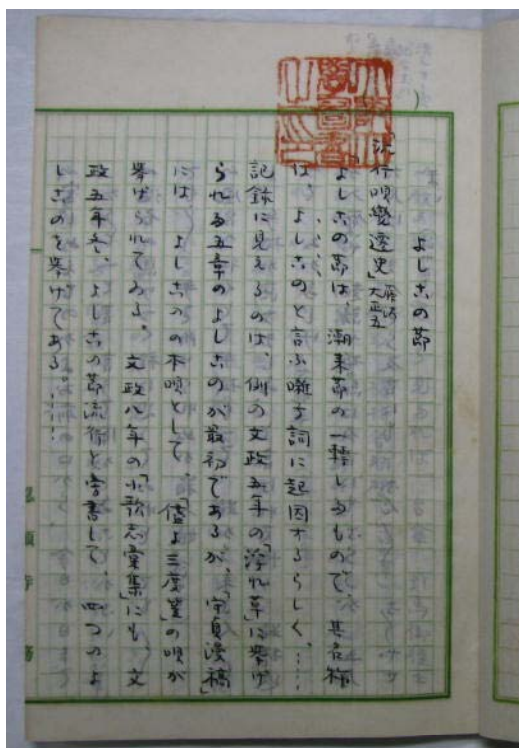 よしこの節
「流行唄變遷史」 大正五
「よしこの節は、潮来節の一種しるもので、其名稱
は、よしこのと言ふ囃す詞に起因するらしく、……
記錄に見えるのは、例の文政五年の「浮れ草」に擧げ
られる五章のよしこのが最初であるが、「守貞漫稿」
には、よしこのの本唄として、「儘よ三度笠」の唄が
擧げられてゐる。文政八年の「小歌志彙集」にも、文
政五年冬、よしこの節流行と書して、四つのよ
しこのを擧げてある。……
忍頂寺 務